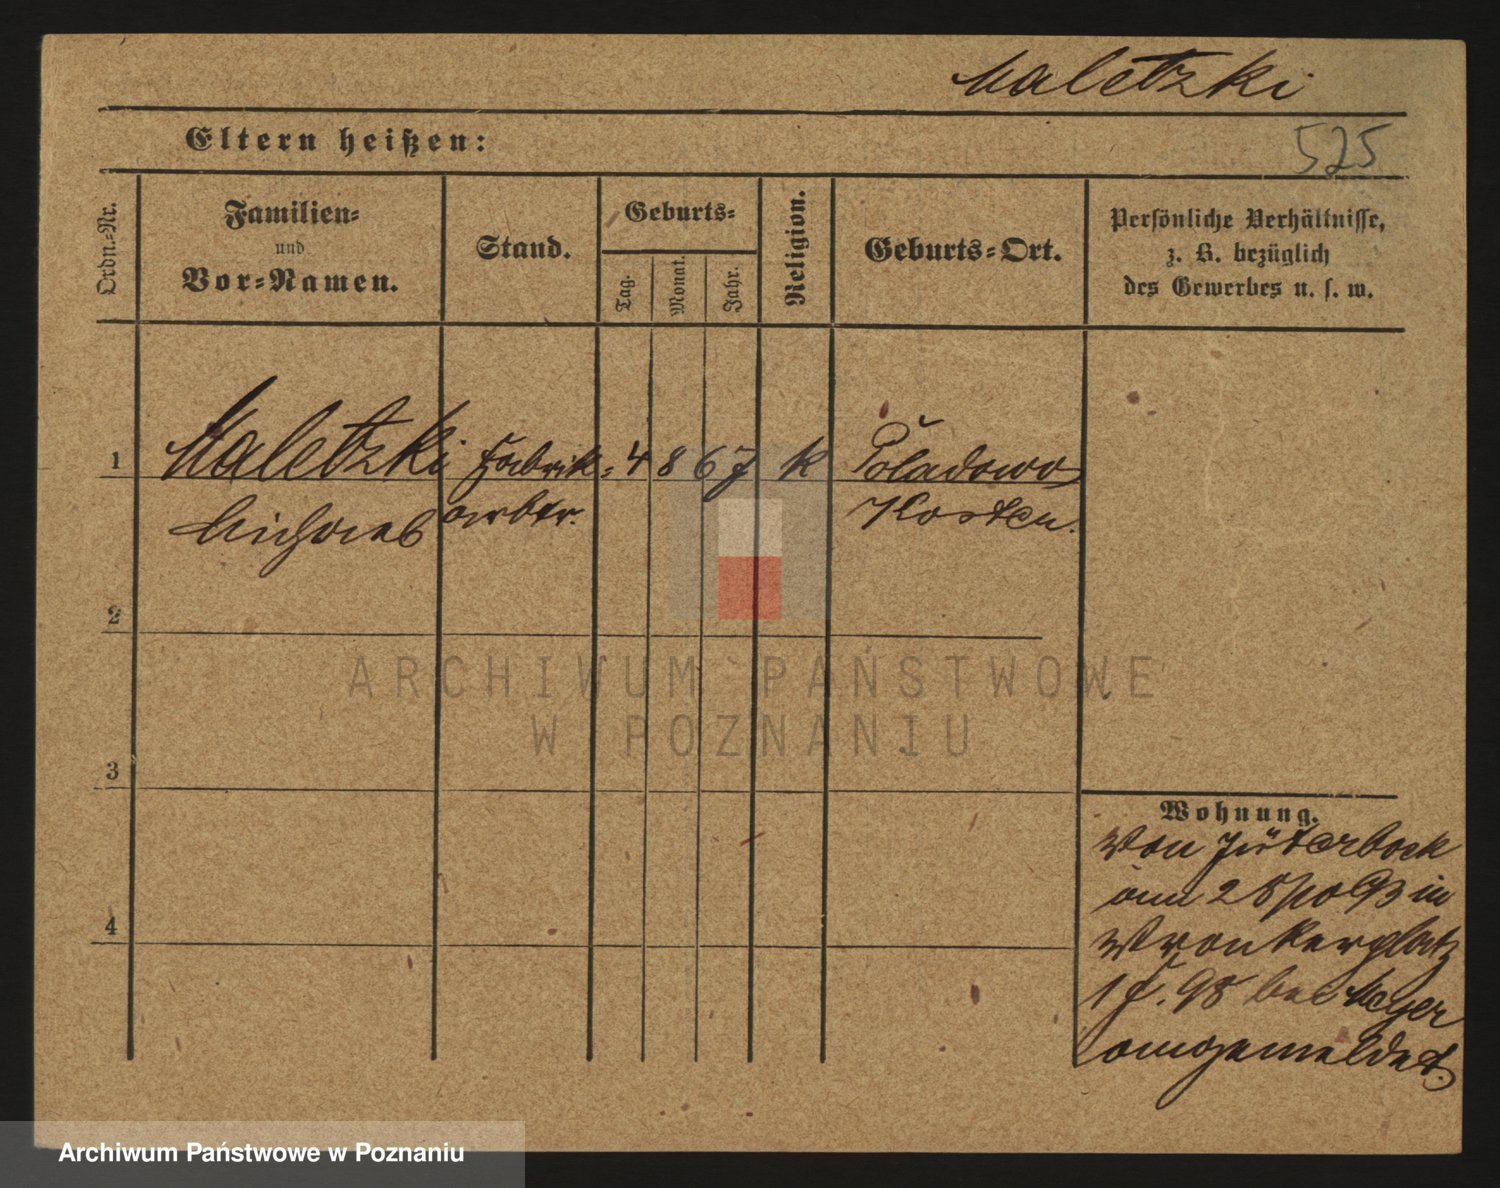 Maletzki
Eltern heißen:
525
Ordn.-Nr.
Familien-
und
Vor-Namen.
Stand.
Geburts-
Tag.
Monat.
Jahr.
Religion.
Geburts-Ort.
Persönliche Verhältnisse,
z. B. bezüglich
des Gewerbes u. s. w.
1 Maletzki Fabrik- 4 8 67 k Poladowo
Michael arbtr. Kosten.
2
ARCHIWUM PAŃSTWOWE
W POZNANIU
3
Wohnung.
Von Jüterbock
am 28/10 93 in
Wronkerplatz
1 f. 98 bei Meyer
angemeldet.
4
Archiwum Państwowe w Poznaniu